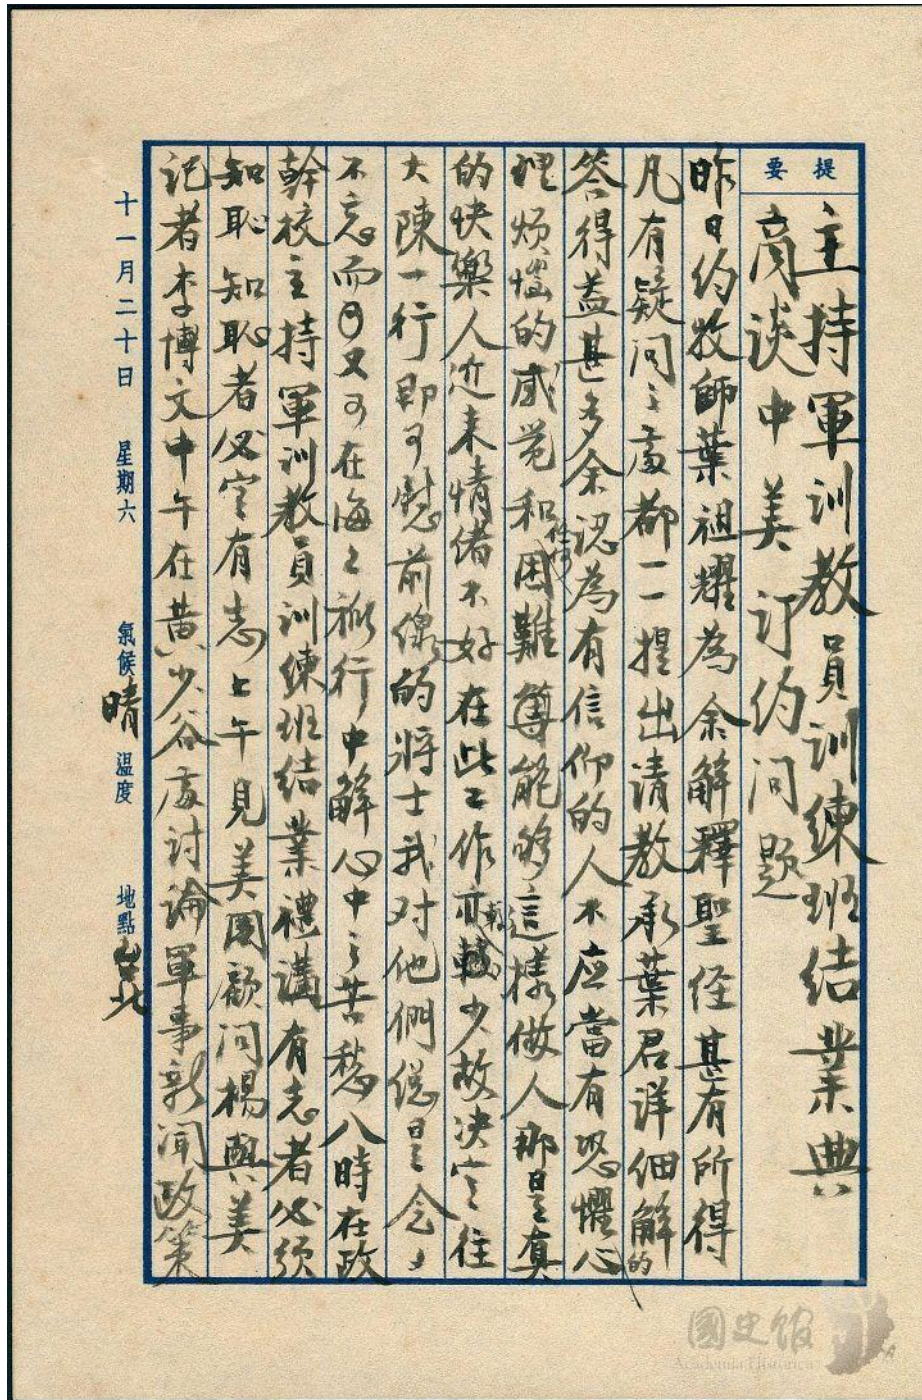 提要
主持軍訓教員訓練班結業典
商談中美订约问题
昨日约牧師葉祖耀為余解釋聖经甚有所得
凡有疑问之處都一一提出请教承葉君详细解的
答得益甚多余認為有信仰的人不应當有恐懼心
理烦惱的感觉和任何困難尊能够這樣做人那是真
的快樂人近来情绪不好在此工作亦較少故决定往
大陳一行即可慰前線的将士我对他們總是念ミ
不忘而同又可在海上旅行中解心中之苦愁八時在政
幹校主持軍训教員訓練班结業禮講有志者必须
知恥知恥者必定有志上午見美國顾问楊與美
记者李博文中午在黄少谷處討論軍事新闻政策
十一月二十日 星期六 氣候晴 溫度 地點台北
國史館
Academia Historica